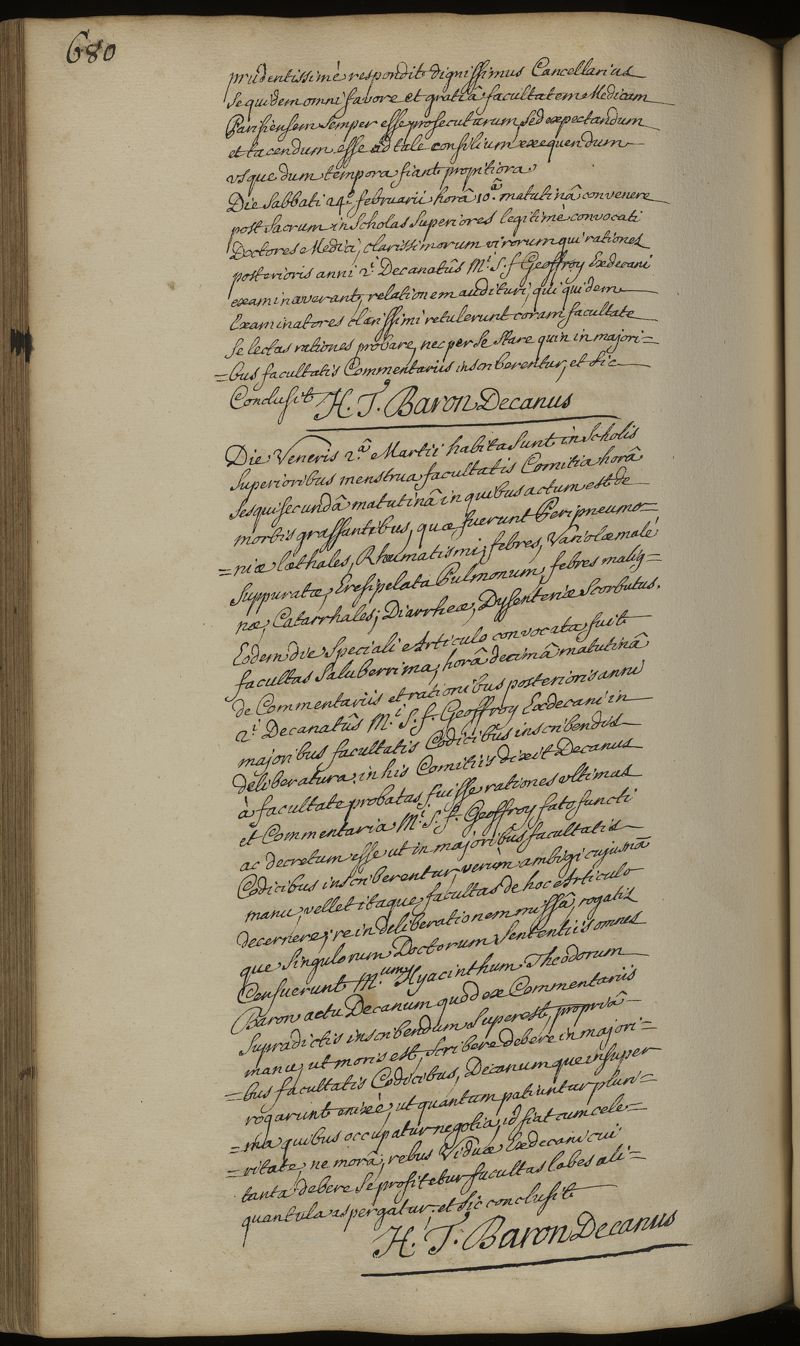 680
prudentissimè respondit dignissimus Cancellarius
se quidem omni favore et gratiâ facultatem Medicam
Parisiensem semper esse prosecuturum, sed expectandum
et tacendum esse ad tale consilium exequendum
usque dum tempora fiant propitiora
Die Sabbati 24.º februarii horâ 10.ª matutinâ convenere
post Sacrum in Scholas Superiores legitimè convocati
Doctores Medici, clarissimorum virorum qui rationes
posterioris anni 2.i Decanatûs M.i S. f Geoffroy Exdecani
examinaverant, relationem audituri, qui quidem
Examinatores clarissimi retulerunt coram facultate
se lectas rationes probare, nec per se stare quin in majori=
=bus facultatis Commentariis inscriberentur, et sic
Conclusit H. T. Baron Decanus
Die Veneris 2.ª Martii habita sunt in Scholis
Superioribus menstrua facultatis Comitia horâ
sesquisecundâ matutinâ in quibus actum est de
morbis grassantibus, quæ fuerunt Peripneumo=
=niæ læthales, Rheumatismi, febres, Variolæ malè
Suppuratæ, Eresipelata Pulmonum, febres malig=
næ, Catarrhales, Diarrheæ, Dysenteriæ Scorbutus.
Eodem die Speciali Articulo convocata fuit
facultas Saluberrima, horâ decimâ matutinâ
de Commentariis et rationibus posterioris anni
2.i Decanatûs M.i S. f. Geoffroy Exdecani in
majoribus facultatis Codicibus inscribendis
deliberatura, in his Comitiis dixit Decanus
à facultate probatas fuisse rationes ultimas
et Commentaria M.i S. f. Geoffroy fato functi
ac decretum esse ut in majoribus facultatis
Codicibus inscriberentur, verùm ambigi cujusnã
manu, vellet itaque facultas de hoc Articulo
decernere, re in deliberationem missâ, rogatis
que singulorum Doctorum Sententiis omnes
Censuerunt M.um Hyacinthum Theodorum
Baron actu Decanum quod ex Commentariis
Supradictis inscribendum superest, propriâ
manu, ut moris est, scribere debere in majori=
=bus facultatis Codicibus, Decanumque insuper
rogarunt enixè, ut quantum patiuntur pluri=
=ma quibus occupatur negotia, id fiat cum cele=
=ritate, ne morâ, rebus Viduæ Exdecani cui
tanta debere se profitetur facultas labes ali=
quantula aspergatur. et sic conclusit
H. T. Baron Decanus